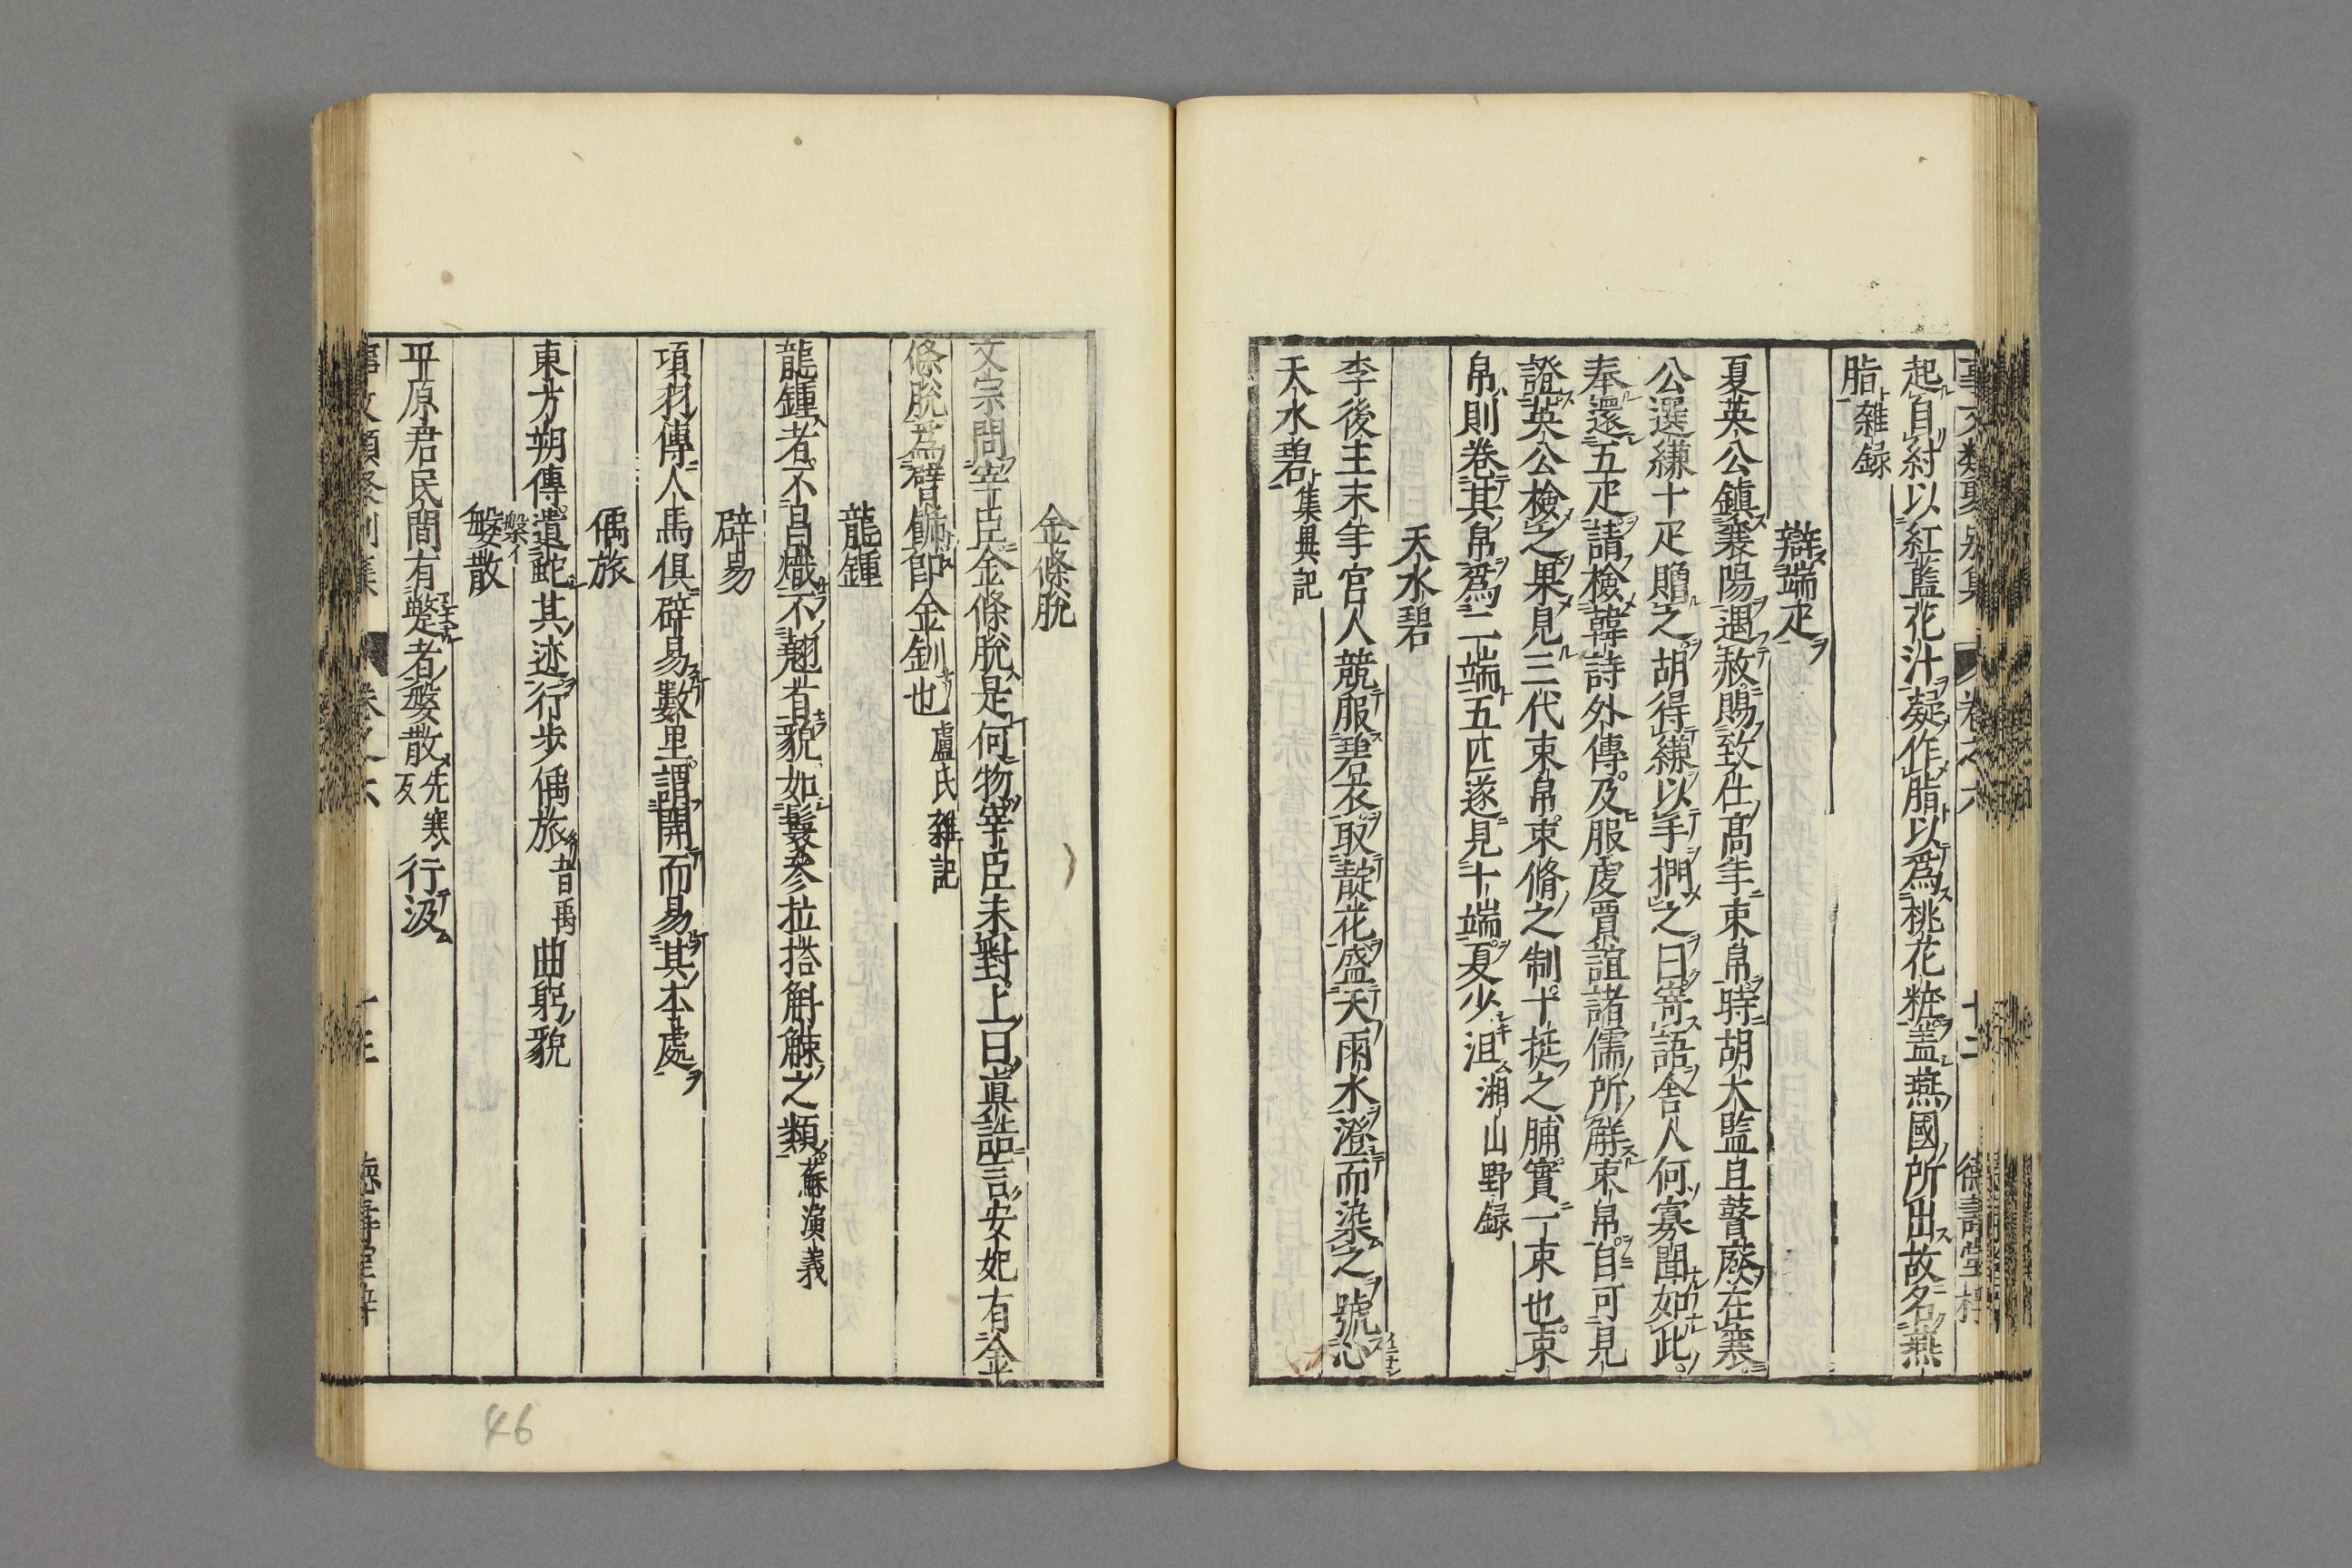 起自紂以紅藍花汁凝作脂以爲桃花粧蓋燕國所出故名燕
脂雜録
辯端疋
夏英公鎮襄陽遇赦賜致仕高年束帛時胡大監且瞽廢在襄
公選縑十疋贈之胡得縑以手捫之曰寄語舍人何寡聞如此
奉還五疋請檢韓詩外傳及服虔賈誼諸儒所解束帛自可見
證英公檢之果見三代束帛束脩之制十挺之脯實一束也束
帛則卷其帛爲二端五匹遂見十端夏少沮湘山野録
天水碧
李後主末年宮人競服碧衣取靛花盛天雨水澄而染之號恋
天水碧集異記
金條脫
文宗問宰臣金條脫是何物宰臣未對上曰眞誥言安妃有金
條脫爲臂飾即金釧也盧氏雜記
龍鍾
龍鍾者不昌熾不翹首貌如鬖參拉搭斛觫之類蘇演義
辟昜
項羽傳人馬俱辟易數里謂開而易其本處
偊旅
東方朔傳遺蛇其迹行歩偊旅音禹曲躬貌
槃イ
媻散
平原君民間有躄者媻散先寒反行汲